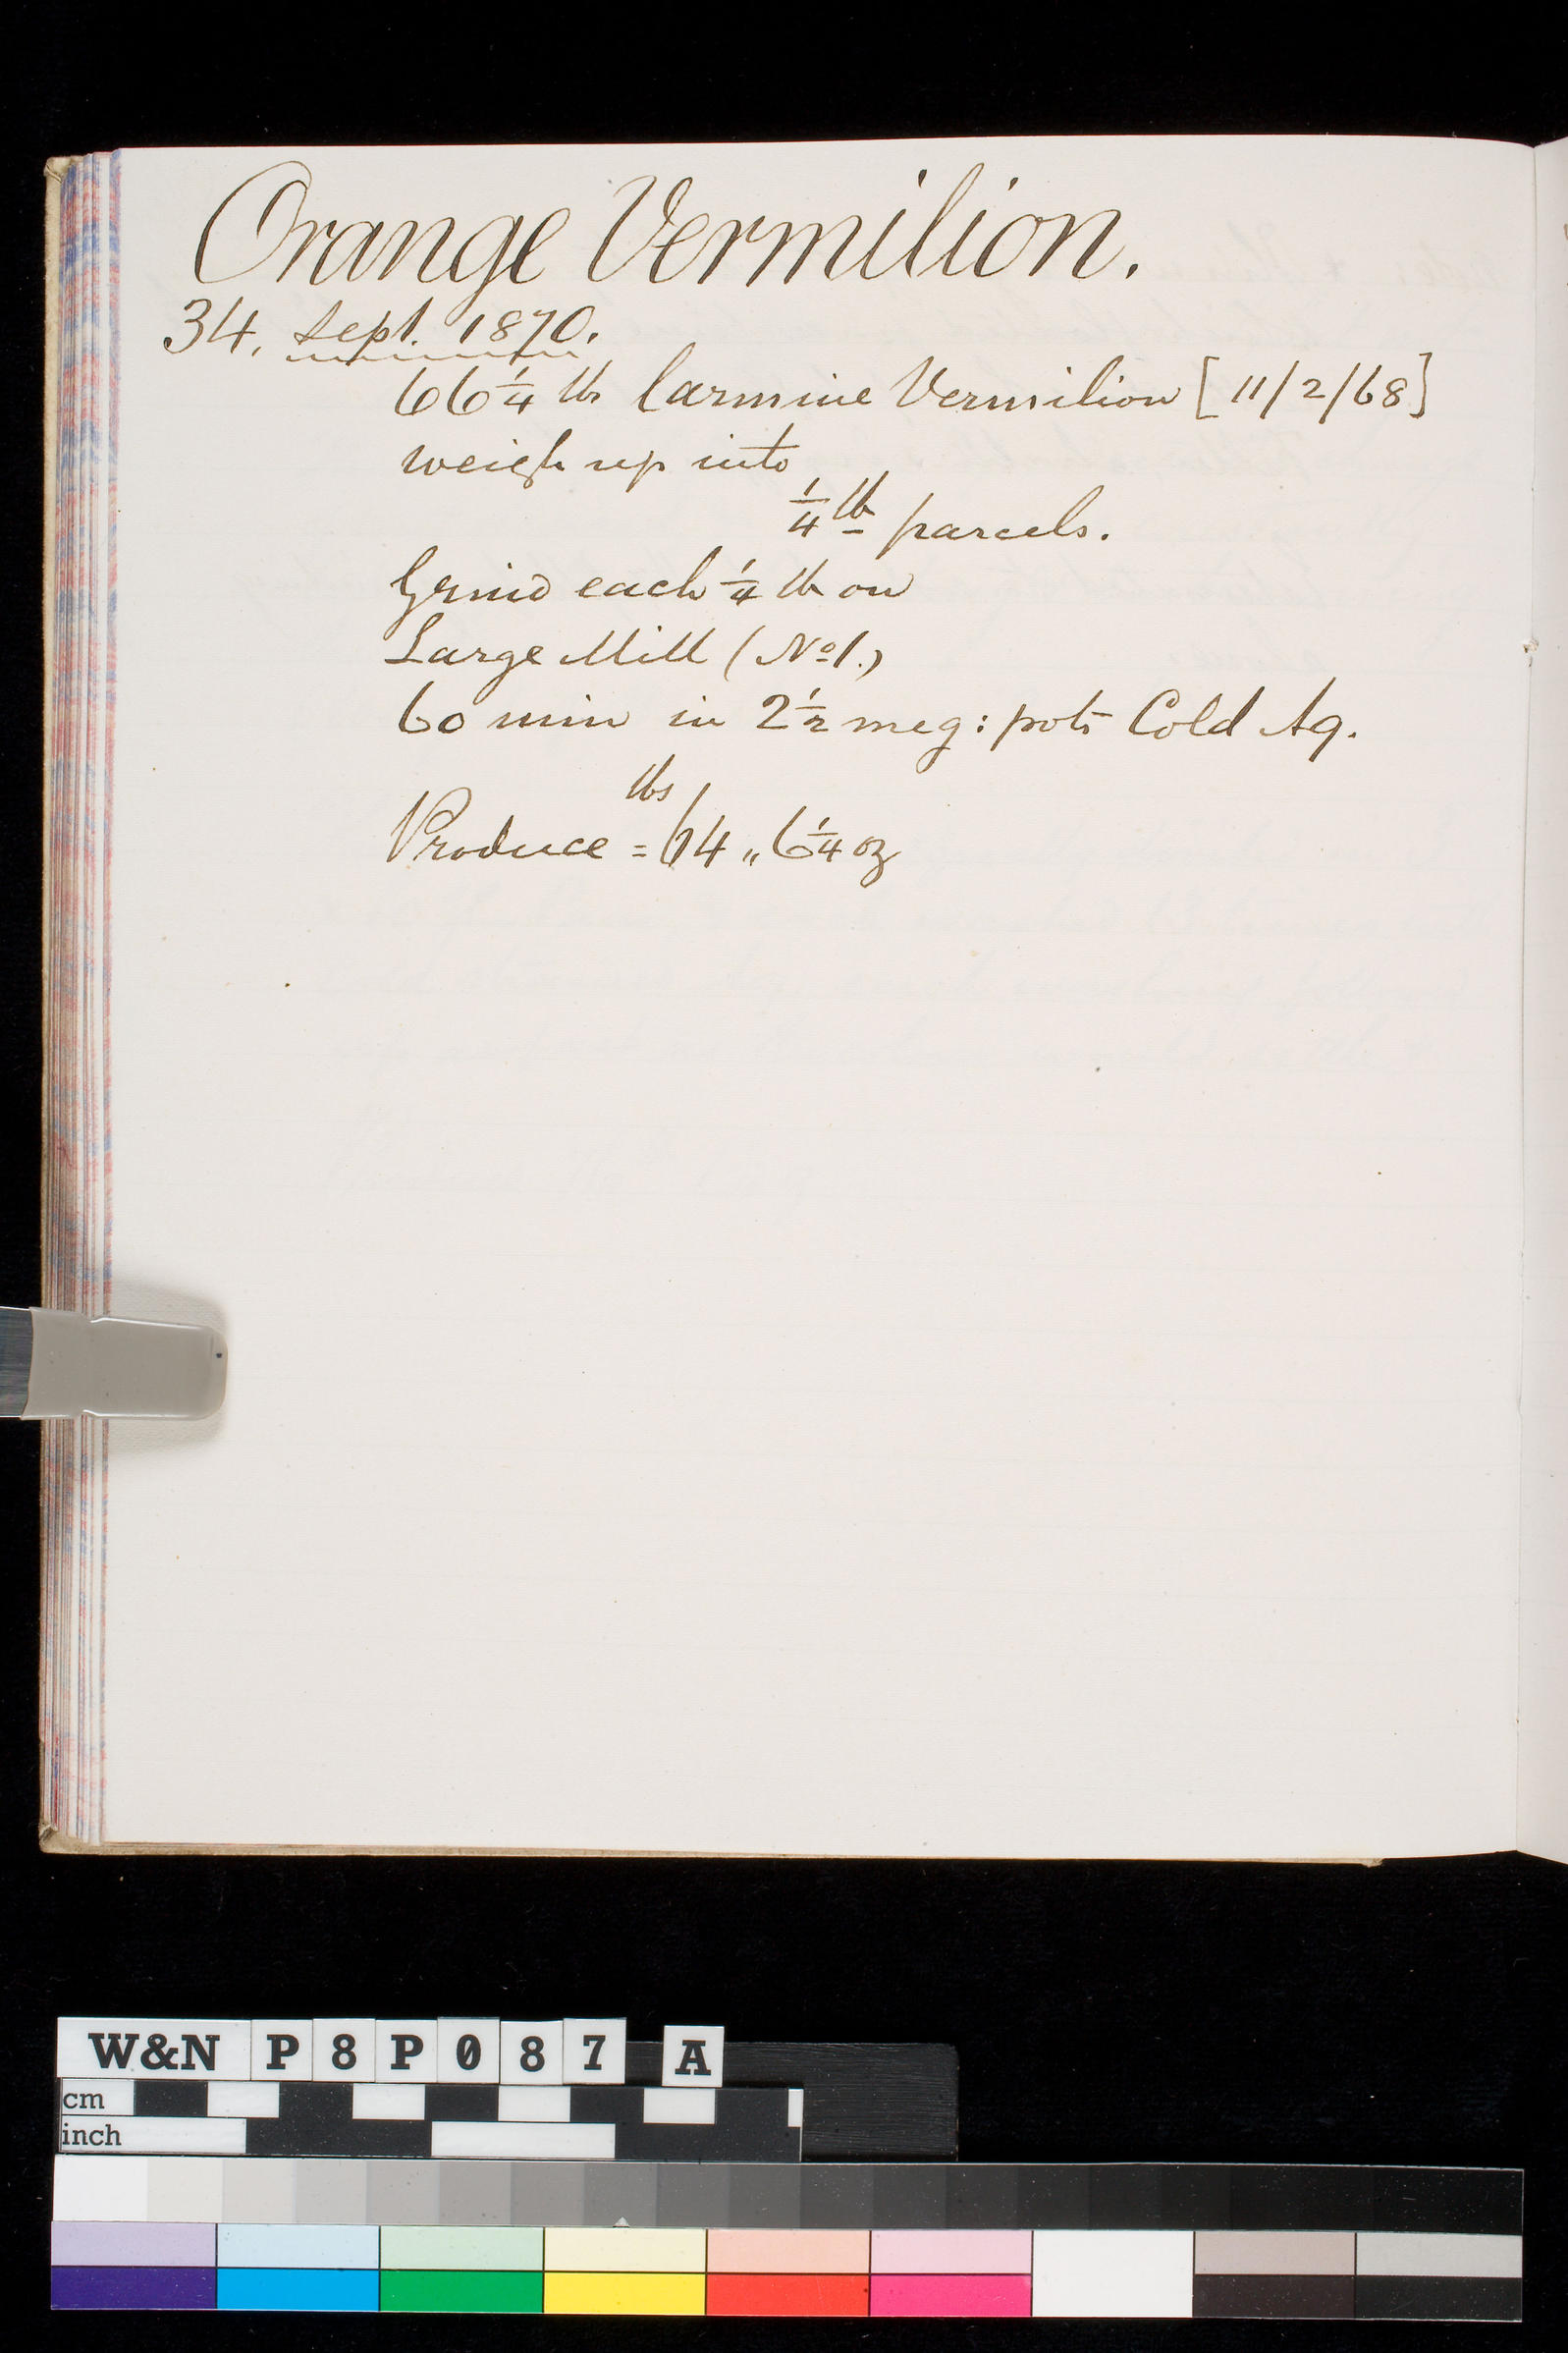 Orange Vermilion.
34. Sept. 1870.
66 1/4 lbs Carmine Vermilion [11/2/68]
weigh up into
1/4 lb parcels.
Grind each 1/4 lb on
Large Mill (No 1.)
60 min in 2 1/2 meg: pots Cold Aq.
lbs
Produce = 64 ,, 6 1/4 oz
W&N P8P087 A
cm
inch